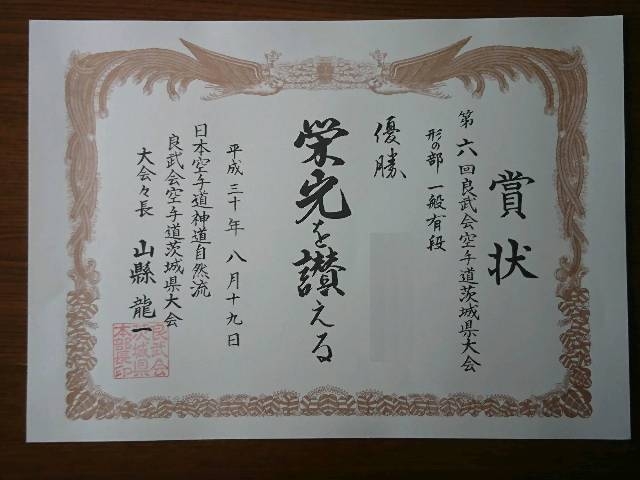 賞状
第六回良武会空手道茨城県大会
形の部 一般有段
優勝
栄光を讃える
平成三十年八月十九日
日本空手道神道自然流
良武会空手道茨城県大会
大会々長 山縣龍一
良武会
茨城県
本部長印